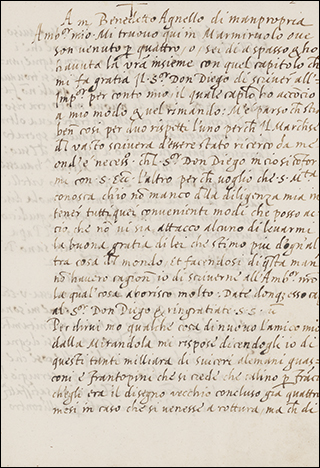 A m Benedetto Agnello di manpropria
Amb.re mio. Mi truovo qui in Marmiruolo ove
son venuto p quattro, o, sei dì a spasso & ho
havuta la vra insieme con quel capitolo ch
mi fa gratia Il S.or Don Diego di scriver all-
Imp.re per conto mio, il quale cap.lo ho accōcio
a mio modo & vel rimando. M'e parso ch stia
ben così per duo rispetti l'uno perch Il March.se
dl vasto scriverà d'essere stato ricerco da me
ond'è necess.o chl S.or Don Diego
mi con S. Ecc. l'altro perch voglio che S. M.ta
conosca ch'io nō manco dlla diligenza mia in
tener tutti quei convenienti modi che posso ac-
ciò, che nō vi sia attacco alcuno di levarmi
la buona gratia di lei che stimo piu d'ogni al
tra cosa dl mondo, et facendosi di q.sta man
nō haverò cagion io di scriverne all'Amb.re nro
la qual cosa aborisco molto. Date
al S.or Don Diego & ringratiate S. S.
Per dirvi mo qualche cosa di nuovo l'amico mio
dalla Mirandola mi rispose dicendogli io di
questi tanti milliara di suiceri alemani guas-
coni e frantopini che si crede che calino p
ch'egli era il disegno vecchio concluso già quattro
mesi in caso che si venesse a rottura, ma ch di